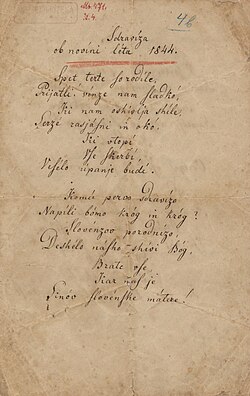 Ms. 471,
N. 4.
46
Sdraviza
ob novini leta 1844.
Spet terte so rodile,
Prijatli, vinze nam sladkó,
Ki nam oshivlja shile,
Serzé rasjásni in okó,
Ki utopi
Vse skerbi,
V
up anje budí.
Komú pervo sdravizo,
Napili bómo króg in króg?
Slovénzov
Deshélo násho shivi Bóg,
Brate vse,
Kar nas je
Sinóv slovénshe mátere!